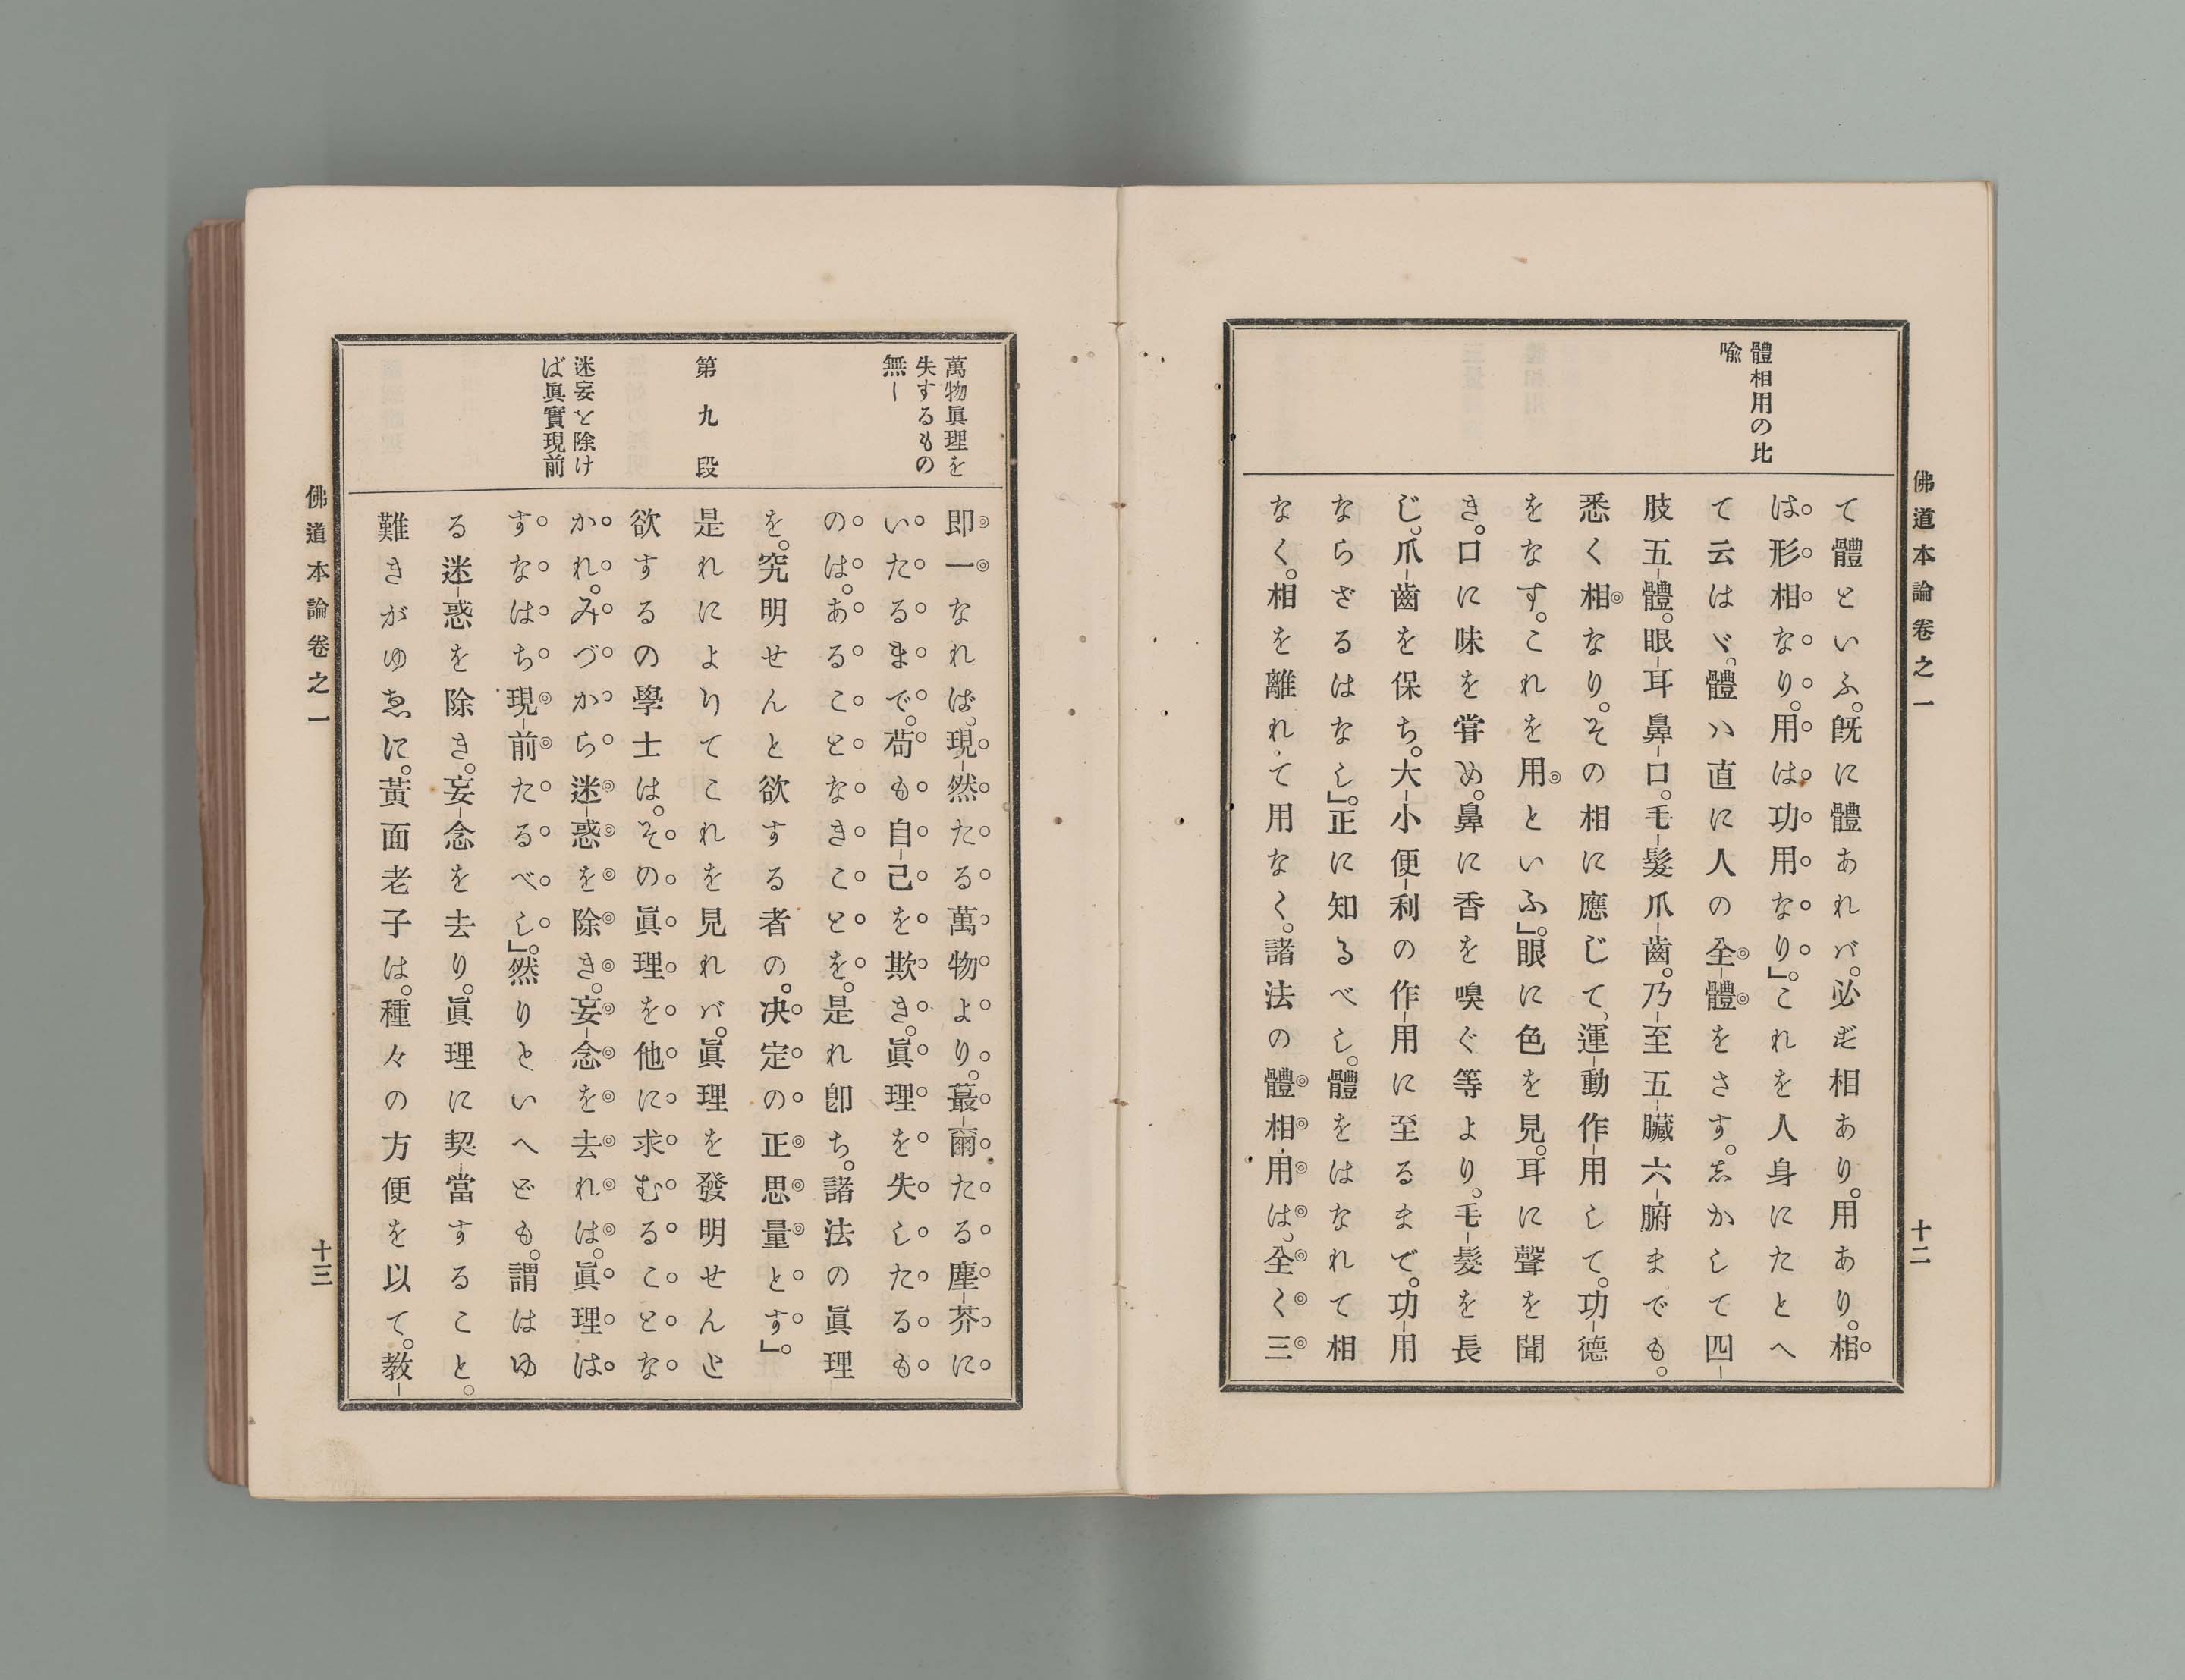 佛道本論卷之一
十二
體相用の比
喩
て體といふ。旣に體あれバ。必ず相あり。用あり。相
は形相なり。用は功用なり」。これを人身にたとへ
て云はゞ。體ハ直に人の全體をさす。志かして四
肢五體。眼耳鼻口。毛髮爪齒。乃至五臟六腑までも。
悉く相なり。その相に應じて、運動作用して。功德
をなす。これを用といふ」。眼に色を見。耳に聲を聞
き。口に味を甞め。鼻に香を嗅ぐ等より。毛髮を長
じ。爪齒を保ち。大小便利の作用に至るまで。功用
ならざるはなし」。正に知るべし。體をはなれて相
なく。相を離れて用なく。諸法の體相用は、全く三
萬物眞理を
失するもの
無し
第九段
迷妄を除け
ば眞實現前
即一なれば。現然たる萬物より。蕞爾たる塵芥に
いたるまで。苟も自己を欺き。眞理を失したるも
のは。あることなきことを。是れ卽ち。諸法の眞理
を。究明せんと欲する者の。决定の正思量とす」。
是れによりてこれを見れバ。眞理を發明せんと
欲するの學士は。その眞理を他に求むることな
かれ。みづから迷惑を除き。妄念を去れは。眞理は
すなはち現前たるべし」。然りといへども。謂はゆ
る迷惑を除き。妄念を去り。眞理に契當すること。
難きがゆゑに。黃面老子は。種々の方便を以て。教
佛道本論卷之一
十三